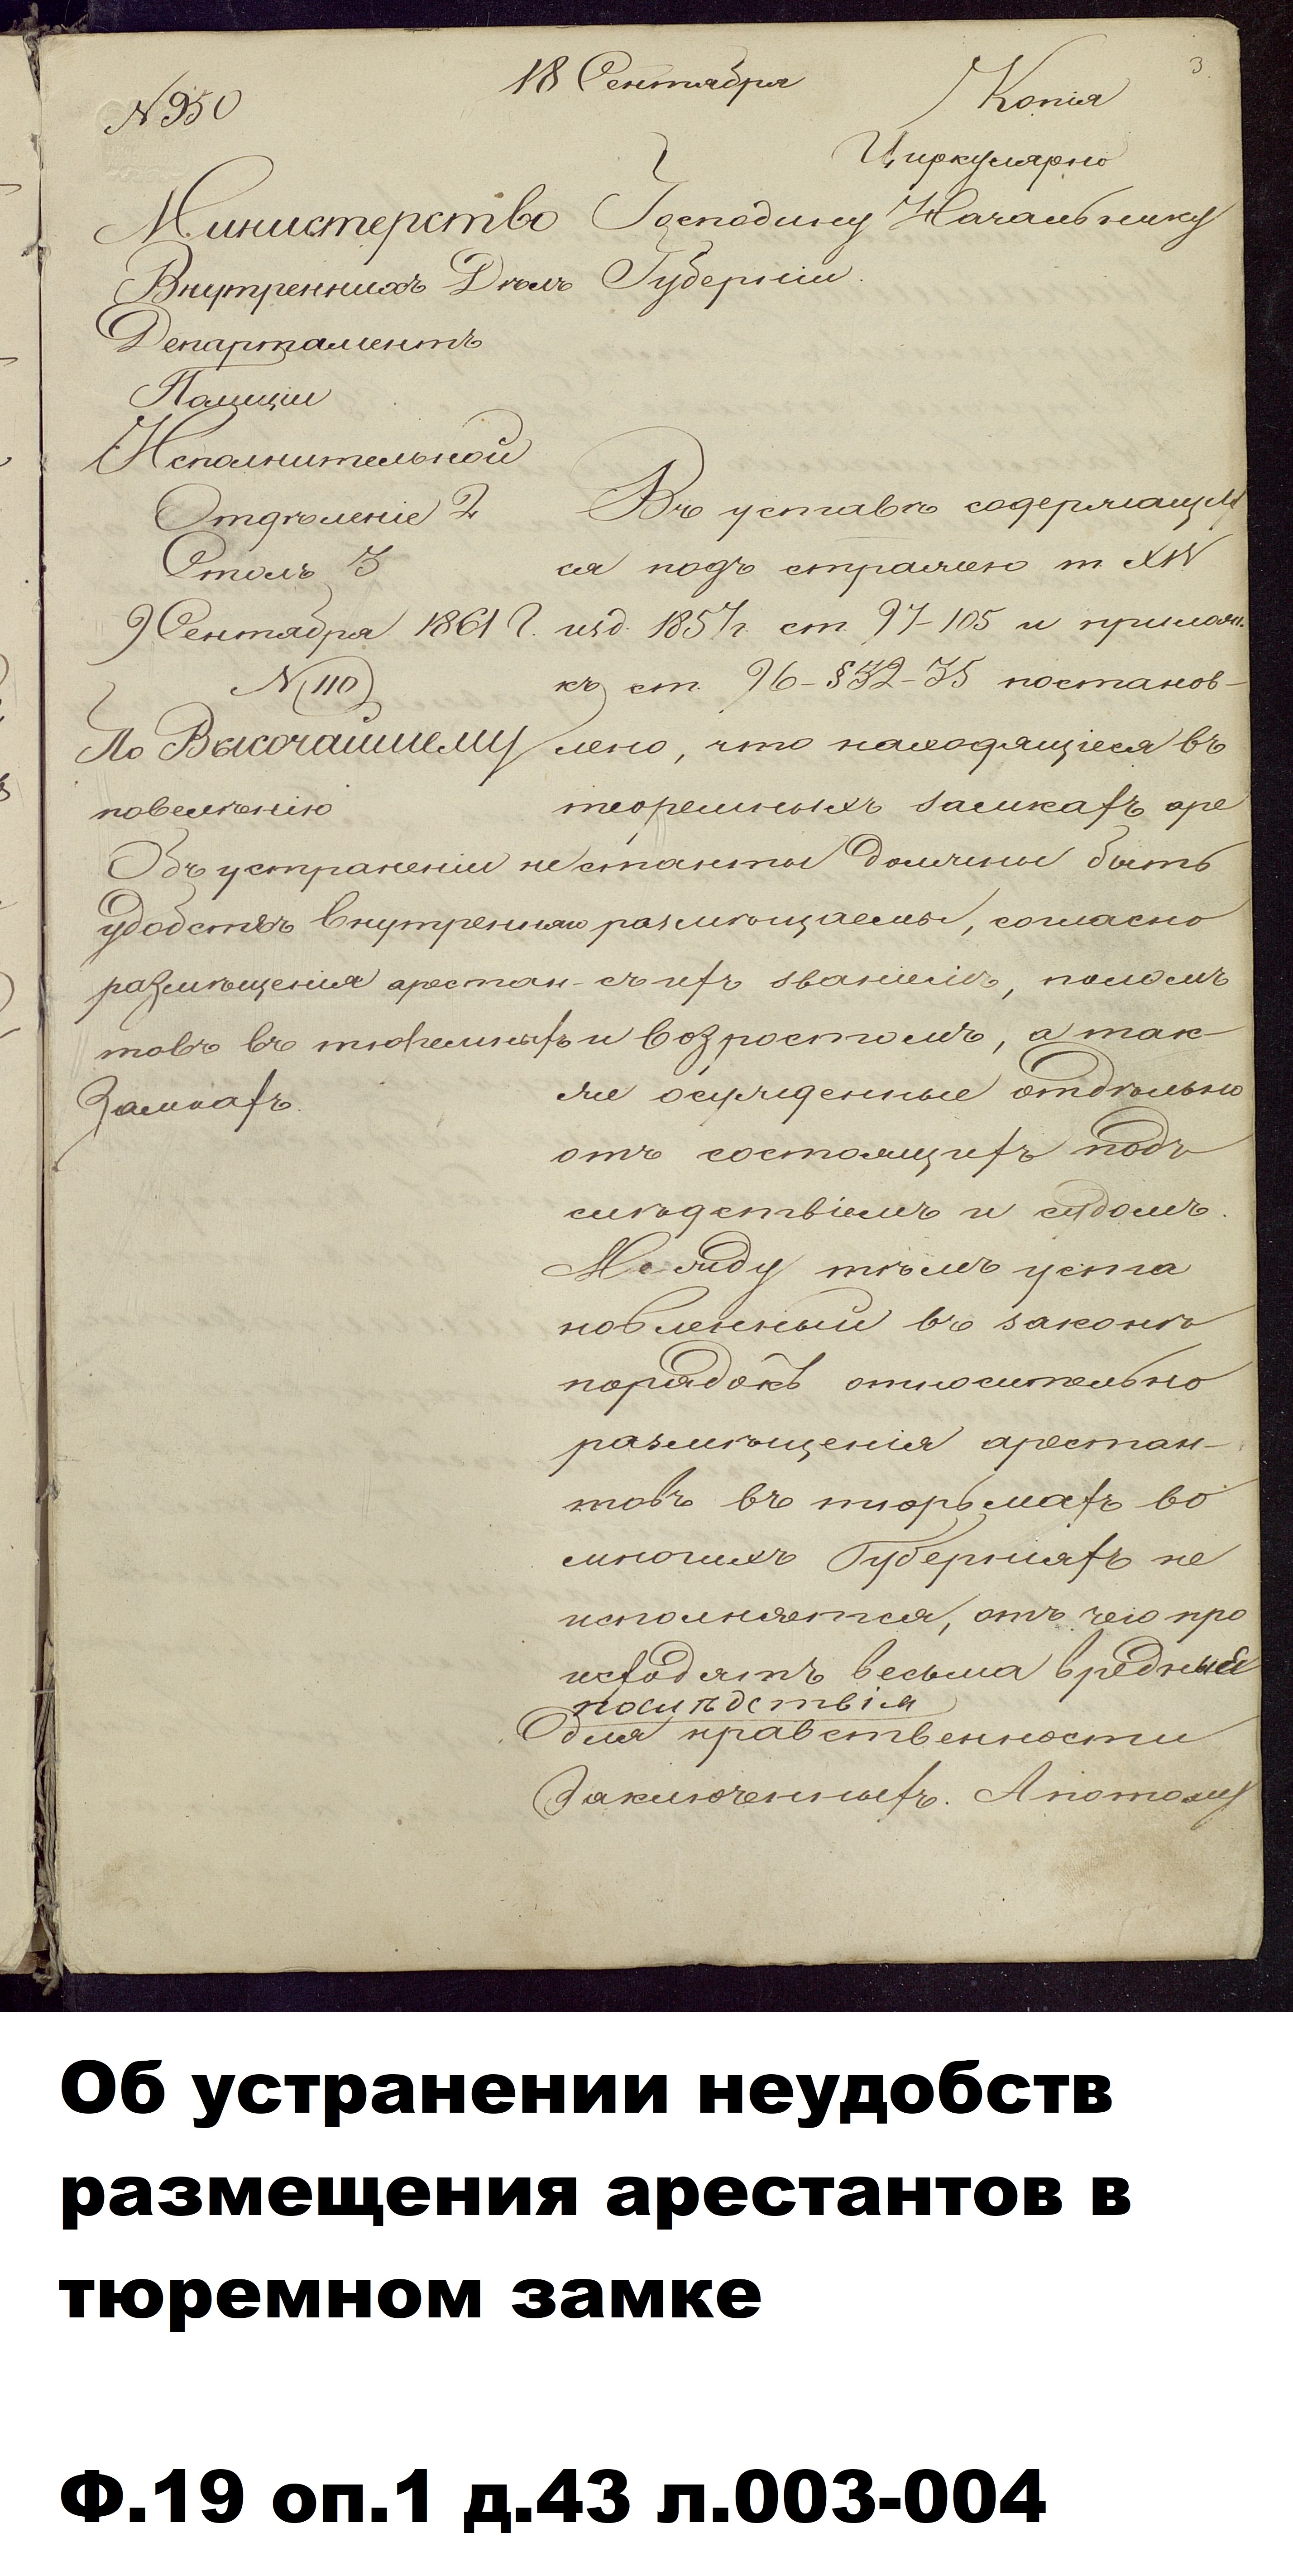 3
18 Сентября
Копія
№ 950
Циркулярно
Министерство
Внутреннихъ Дѣлъ
Департаментъ
Полиціи
Исполнительной
Отдѣленіе 2
Столъ 3
9 Сентября 1861 г.
№ 110
По Высочайшему
повелѣнію
Объ устраненіи не
удобствъ внутренняго
размѣщенія арестан-
товъ въ тюремныхъ
Замкахъ.
Господину Начальнику
Губерніи.
Въ уставѣ содержащим
ся подъ стражею т XIV
изд. 1857 г. ст. 97-105 и прилож.
къ ст. 96 - § 32-35 постанов-
лено, что находящіеся въ
тюремныхъ замкахъ аре
станты должны быть
размѣщаемы, согласно
съ ихъ званіемъ, поломъ
и возростомъ, а так-
же осужденные отдѣльно
отъ состоящихъ подъ
слѣдствіемъ и судомъ.
Между тѣмъ уста
новленный въ законѣ
порядокъ относительно
размѣщенія арестан-
товъ въ тюрьмахъ во
многихъ Губерніяхъ не
исполняется, отъ чего про
исходятъ весьма вредныя
послѣдствія
для нравственности
Заключенныхъ. А потому
Об устранении неудобств
размещения арестантов в
тюремном замке
Ф.19 оп.1 д.43 л.003-004